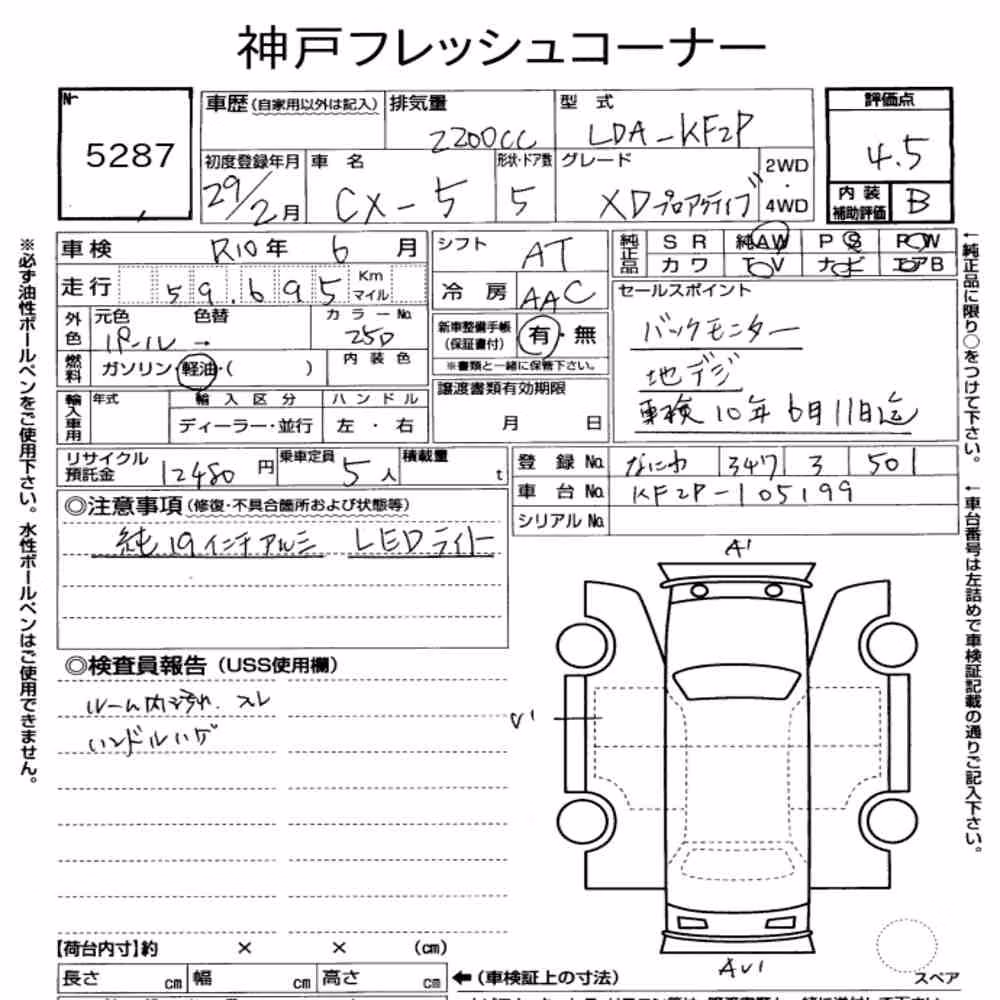 神戸フレッシュコーナー
№ 5287
車歴(自家用以外は記入)
排気量 2200CC
型式 LDA-KF2P
評価点 4.5
内装補助評価 B
初度登録年月 29/2月
車名 CX-5
形状・ドア数 5
グレード XDプロアクティブ
2WD・4WD
車検 R10年 6月
走行 59.695 Km マイル
シフト AT
冷房 AAC
純正品 SR 純AW PS PW
カワ TV ナビ エアB
外色 元色 パール → 色替 カラーNo. 25D
内装色
燃料 ガソリン・軽油・( )
新車整備手帳(保証書付) 有・無
※書類と一緒に保管下さい。
セールスポイント
バックモニター
地デジ
車検10年6月11日迄
譲渡書類有効期限
月 日
輸入車用 年式 輸入区分 ハンドル
ディーラー・並行 左・右
リサイクル預託金 12480円
乗車定員 5人
積載量 t
登録No. なにわ 347 3 501
車台No. KF2P-105199
シリアルNo.
◎注意事項(修復・不具合箇所および状態等)
純19インチアルミ LEDライト
◎検査員報告(USS使用欄)
ルーム内汚れ、スレ
ハンドルハゲ
A1
U1
AU1
スペア
【荷台内寸】約 × × (cm)
長さ cm 幅 cm 高さ cm
←(車検証上の寸法)
※必ず油性ボールペンをご使用下さい。水性ボールペンはご使用できません。
←純正品に限り○をつけて下さい。
←車台番号は左詰めで車検証記載の通りご記入下さい。